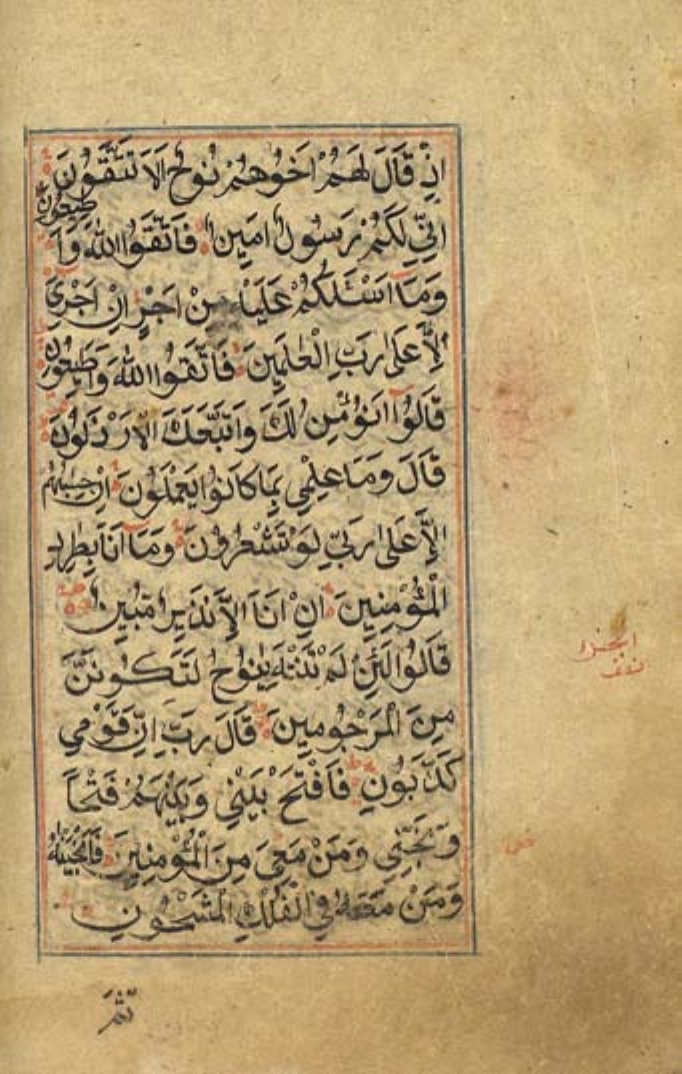 اِذْ قَالَ لَهُمْ اَخُوهُمْ نُوحٌ اَلَا تَتَّقُونَ
اِنِّي لَكُمْ رَسُولٌ اَمِينٌ فَاتَّقُوا اللّٰهَ وَاَطِيعُونِ
وَمَآ اَسْـَٔلُكُمْ عَلَيْهِ مِنْ اَجْرٍ اِنْ اَجْرِيَ
اِلَّا عَلٰى رَبِّ الْعٰلَمِينَ فَاتَّقُوا اللّٰهَ وَاَطِيعُونِ
قَالُوٓا اَنُؤْمِنُ لَكَ وَاتَّبَعَكَ الْاَرْذَلُونَ
قَالَ وَمَا عِلْمِي بِمَا كَانُوا يَعْمَلُونَ اِنْ حِسَابُهُمْ
اِلَّا عَلٰى رَبِّي لَوْ تَشْعُرُونَ وَمَآ اَنَا بِطَارِدِ
الْمُؤْمِنِينَ اِنْ اَنَا اِلَّا نَذِيرٌ مُبِينٌ
قَالُوا لَئِنْ لَمْ تَنْتَهِ يٰنُوحُ لَتَكُونَنَّ
مِنَ الْمَرْجُومِينَ قَالَ رَبِّ اِنَّ قَوْمِي
كَذَّبُونِ فَافْتَحْ بَيْنِي وَبَيْنَهُمْ فَتْحًا
وَنَجِّنِي وَمَنْ مَعِيَ مِنَ الْمُؤْمِنِينَ فَاَنْجَيْنٰهُ
وَمَنْ مَعَهُ فِي الْفُلْكِ الْمَشْحُونِ
ثُمَّ